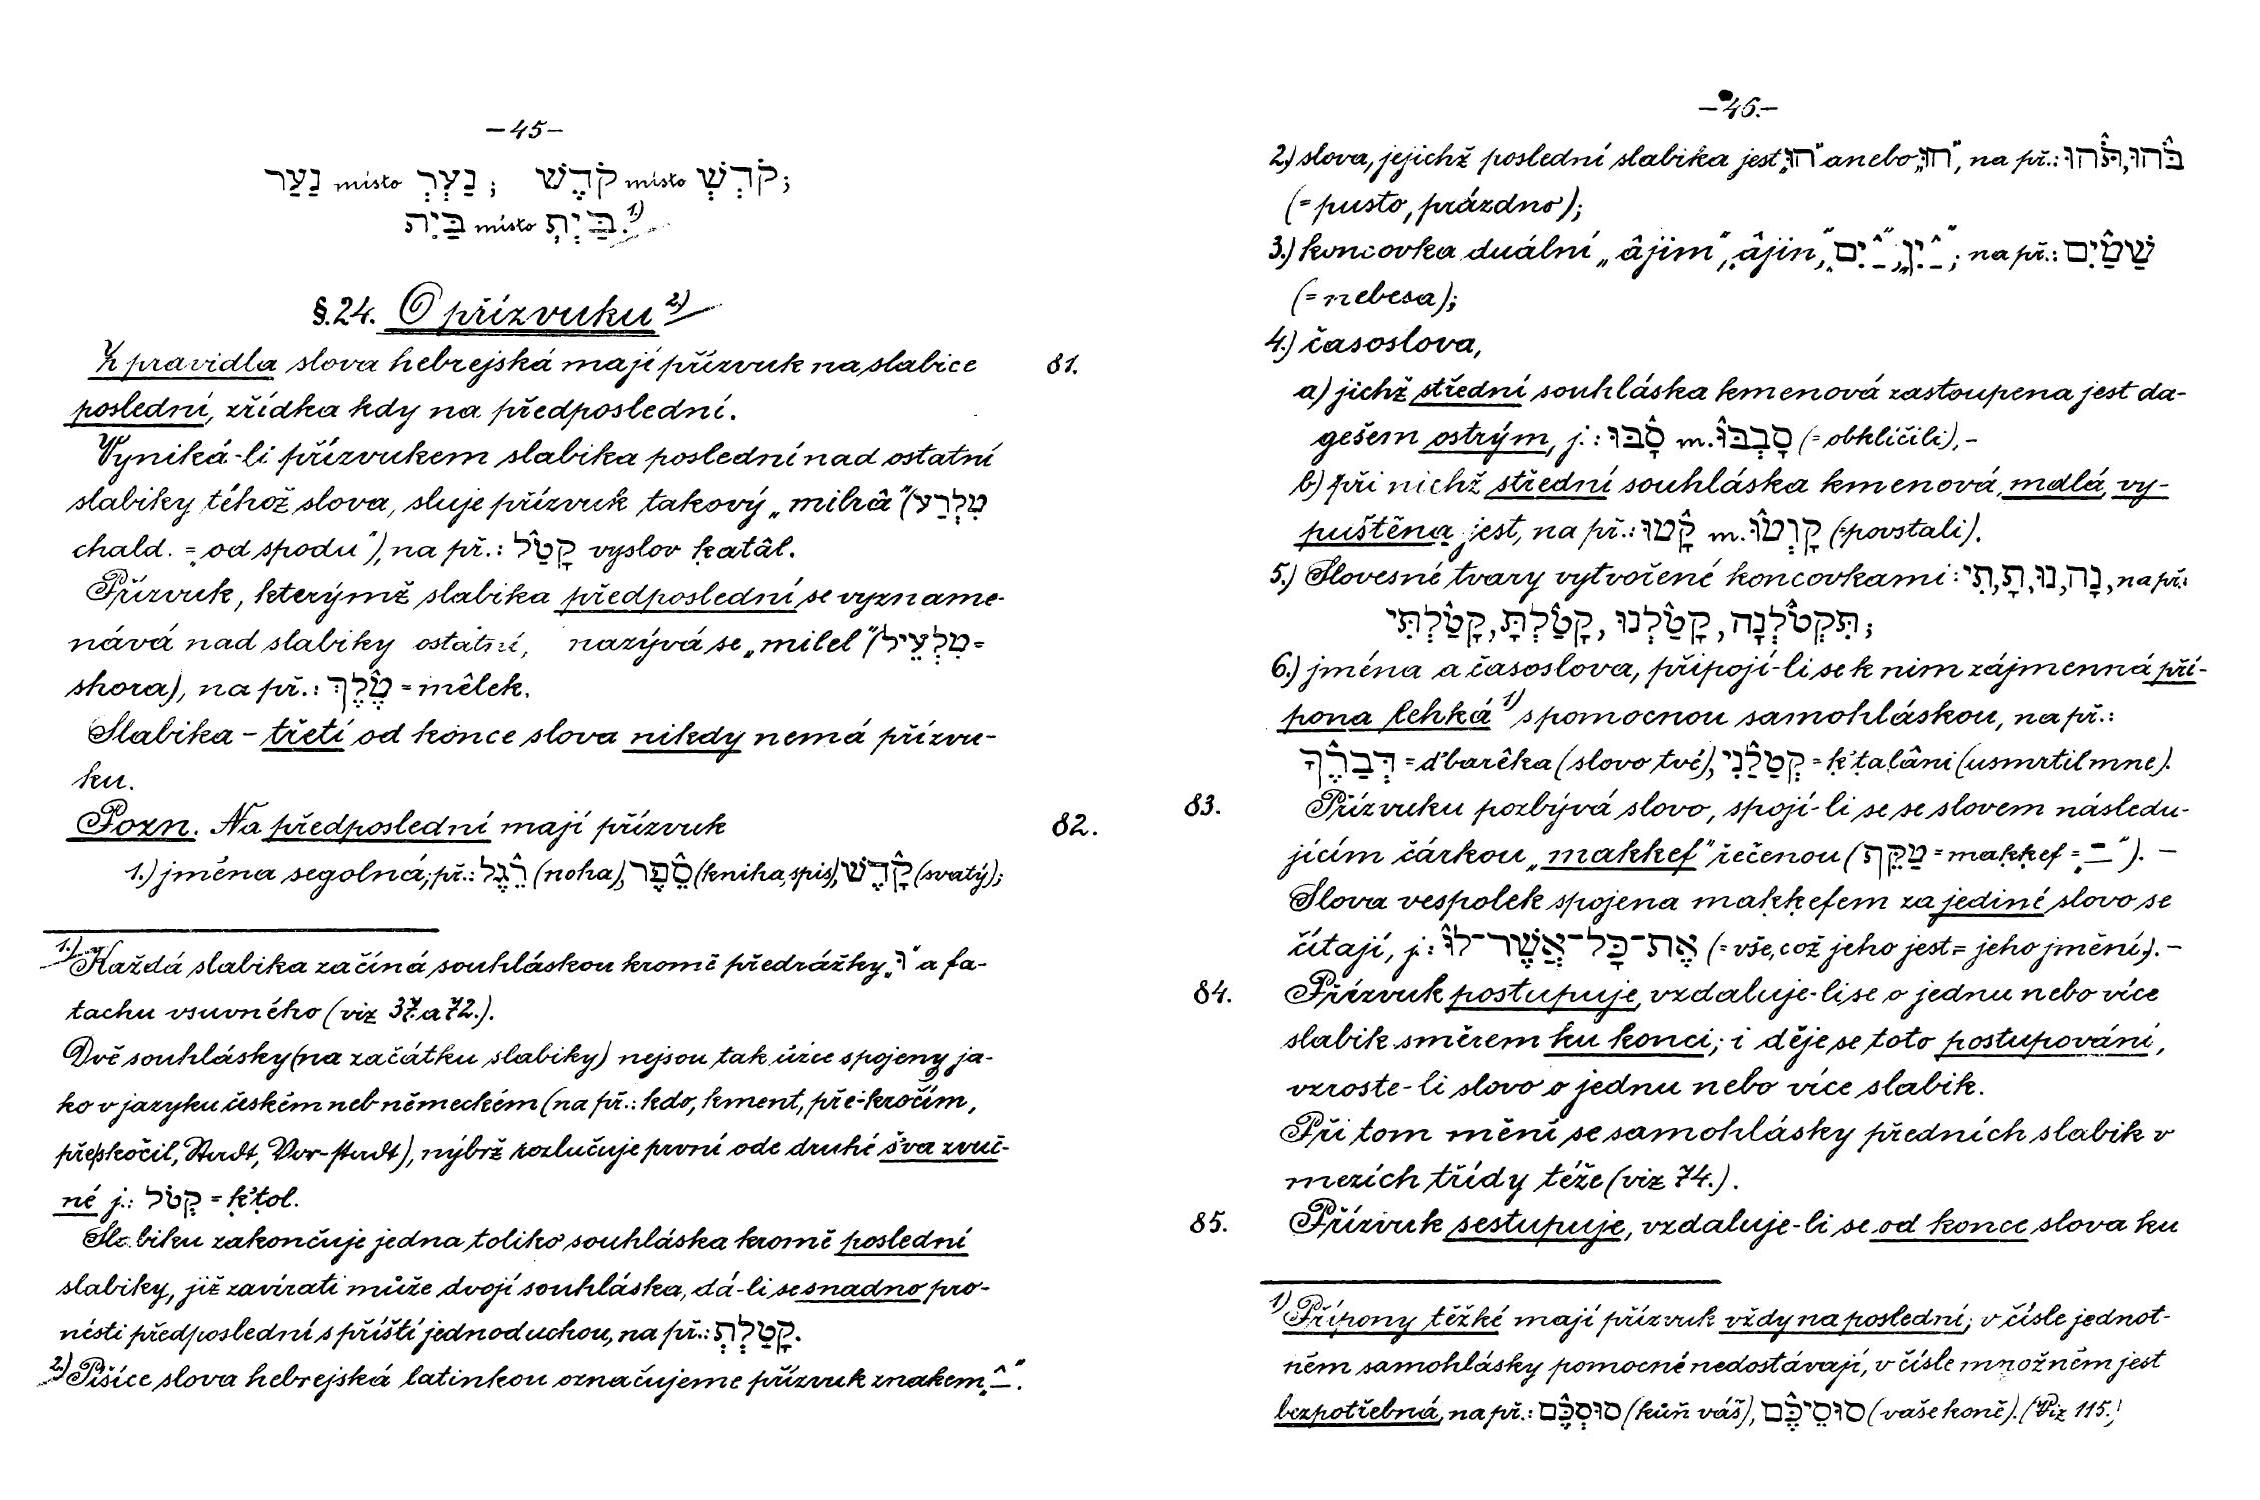 —45—
נַעַר místo נַעְרְ ; קֹדֶשׁ místo קֹדְשְׁ;
בַּיִת místo בַּיְתְ.¹⁾
§.24. O přízvuku ²⁾
Z pravidla slova hebrejská mají přízvuk na slabice 81.
poslední, zřídka kdy na předposlední.
Vyniká-li přízvukem slabika poslední nad ostatní
slabiky téhož slova, sluje přízvuk takový „milrâ“ (מִלְרַע
chald. = „od spodu“), na př.: קָטַ֯ל vyslov ḳatâl.
Přízvuk, kterýmž slabika předposlední se vyzname-
nává nad slabiky ostatní, nazývá se „milel“ (מִלְעֵיל =
shora), na př.: מֶ֯לֶךְ = mêlek.
Slabika – třetí od konce slova nikdy nemá přízvu-
ku.
Pozn. Na předposlední mají přízvuk 82.
1.) jména segolná; př.: רֶ֯גֶל (noha), סֵ֯פֶר (kniha, spis), קָ֯דֶשׁ (svatý);
¹·⁾ Každá slabika začíná souhláskou kromě předrážky „וּ“ a fa-
tachu vsuvného (viz 37. a 72.).
Dvě souhlásky (na začátku slabiky) nejsou tak úzce spojeny ja-
ko v jazyku českém neb německém (na př.: kdo, kment, pře-kročím,
přeskočil, Stadt, Vor-stadt), nýbrž rozlučuje první ode druhé šva zvuč-
né j.: קְטֹל = ḳ'ṭol.
Slabiku zakončuje jedna toliko souhláska kromě poslední
slabiky, již zavírati může dvojí souhláska, dá-li se snadno pro-
nésti předposlední s příští jednoduchou, na př.: קָטַלְתְּ.
²·⁾ Píšíce slova hebrejská latinkou označujeme přízvuk znakem „ ̂ “.
—46.—
2.) slova, jejichž poslední slabika jest „הוּ“ anebo „חוּ“, na př.: בֹּ֯הוּ, תֹּ֯הוּ
(= pusto, prázdno);
3.) koncovka duální „âjim“, „âjin“, „ ַ֯יִם“, „ ַ֯יִן“; na př.: שָׁמַ֯יִם
(= nebesa);
4.) časoslova,
a) jichž střední souhláska kmenová zastoupena jest da-
gešem ostrým, j.: סָ֯בּוּ m. סָבְבּוּ֯ (= obklíčili), –
b) při nichž střední souhláska kmenová, mdlá, vy-
puštěna jest, na př.: קָ֯מוּ m. קָוְמוּ֯ (= povstali).
5.) Slovesné tvary vytvořené koncovkami: נָה, נוּ, תָּ, תִּי, na př.:
תִּקְטֹ֯לְנָה, קָטַ֯לְנוּ, קָטַ֯לְתָּ, קָטַ֯לְתִּי;
6.) jména a časoslova, připojí-li se k nim zájmenná pří-
pona lehká ¹⁾ s pomocnou samohláskou, na př.:
דְּבָרֶ֯ךָ = d'barêka (slovo tvé), קְטָלַ֯נִי = ḳ'ṭalâni (usmrtil mne).
83. Přízvuku pozbývá slovo, spojí-li se se slovem následu-
jícím čárkou „makkef“ řečenou (מַקֵּף = maḳḳef = „ ־ “). –
Slova vespolek spojena maḳḳefem za jediné slovo se
čítají, j.: אֶת־כָּל־אֲשֶׁר־לוֹ֯ (= vše, což jeho jest = jeho jmění). –
84. Přízvuk postupuje, vzdaluje-li se o jednu nebo více
slabik směrem ku konci; i děje se toto postupování,
vzroste-li slovo o jednu nebo více slabik.
Při tom mění se samohlásky předních slabik v
mezích třídy téže (viz 74.).
85. Přízvuk sestupuje, vzdaluje-li se od konce slova ku
¹⁾ Přípony těžké mají přízvuk vždy na poslední; v čísle jednot-
ném samohlásky pomocné nedostávají, v čísle množném jest
bezpotřebná, na př.: סוּסְכֶ֯ם (kůň váš), סוּסֵיכֶ֯ם (vaše koně). (Viz 115.)